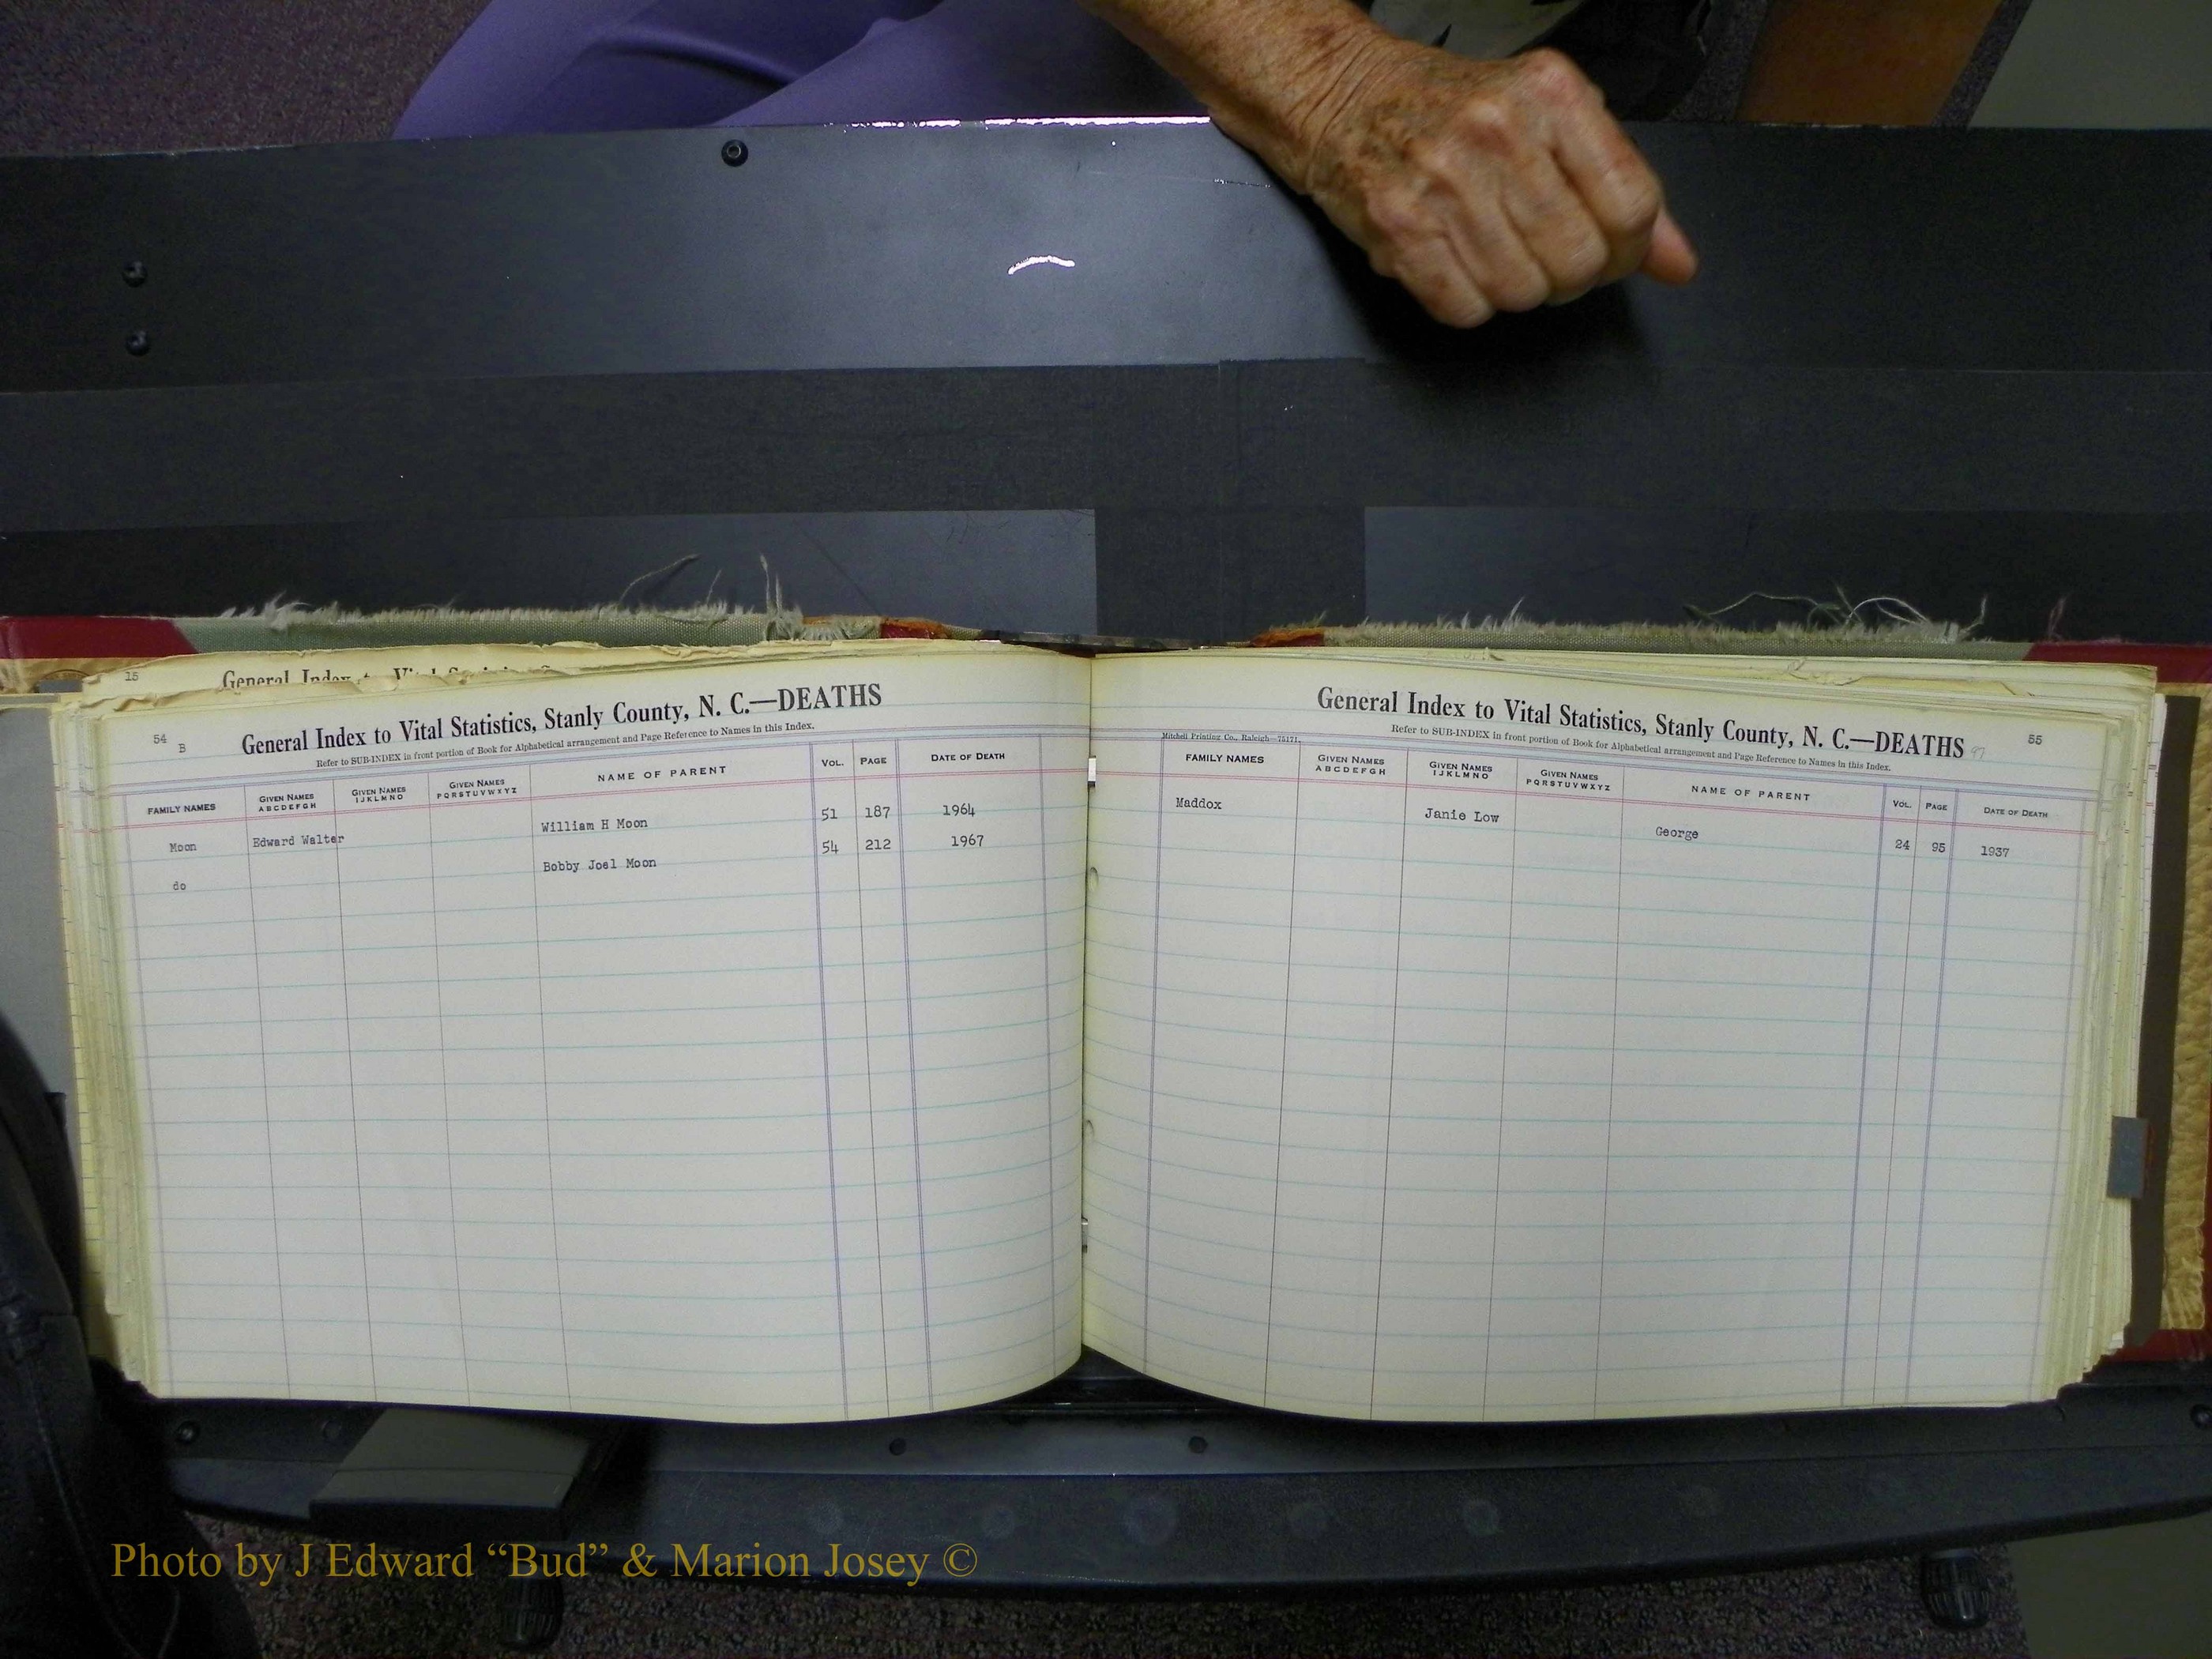 15
General Index to Vital Statistics
54
B
General Index to Vital Statistics, Stanly County, N. C.—DEATHS
Refer to SUB-INDEX in front portion of Book for Alphabetical arrangement and Page Reference to Names in this Index.
FAMILY NAMES GIVEN NAMES ABCDEFGH GIVEN NAMES IJKLMNO GIVEN NAMES PQRSTUVWXYZ NAME OF PARENT VOL. PAGE DATE OF DEATH
Moon Edward Walter William H Moon 51 187 1964
do Bobby Joel Moon 54 212 1967
General Index to Vital Statistics, Stanly County, N. C.—DEATHS
55
Mitchell Printing Co., Raleigh—75171.
Refer to SUB-INDEX in front portion of Book for Alphabetical arrangement and Page Reference to Names in this Index.
FAMILY NAMES GIVEN NAMES ABCDEFGH GIVEN NAMES IJKLMNO GIVEN NAMES PQRSTUVWXYZ NAME OF PARENT VOL. PAGE DATE OF DEATH
Maddox Janie Low George 24 95 1937
Photo by J Edward “Bud” & Marion Josey ©